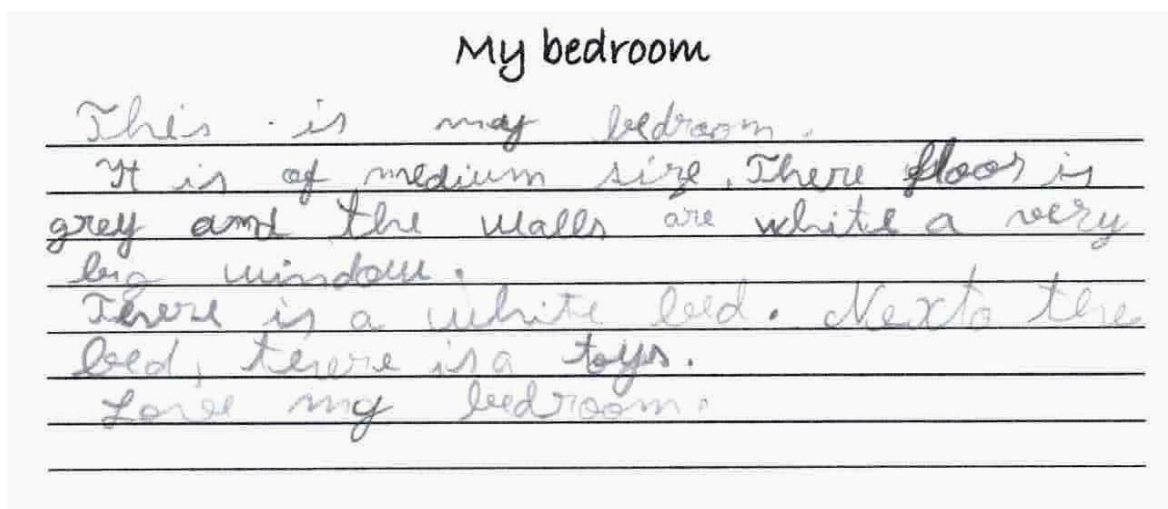 My bedroom
This is my bedroom.
It is of medium size. There floor is
grey and the walls are white a very
big window.
There is a white bed. Nexto the
bed, there is a toys.
Love my bedroom.